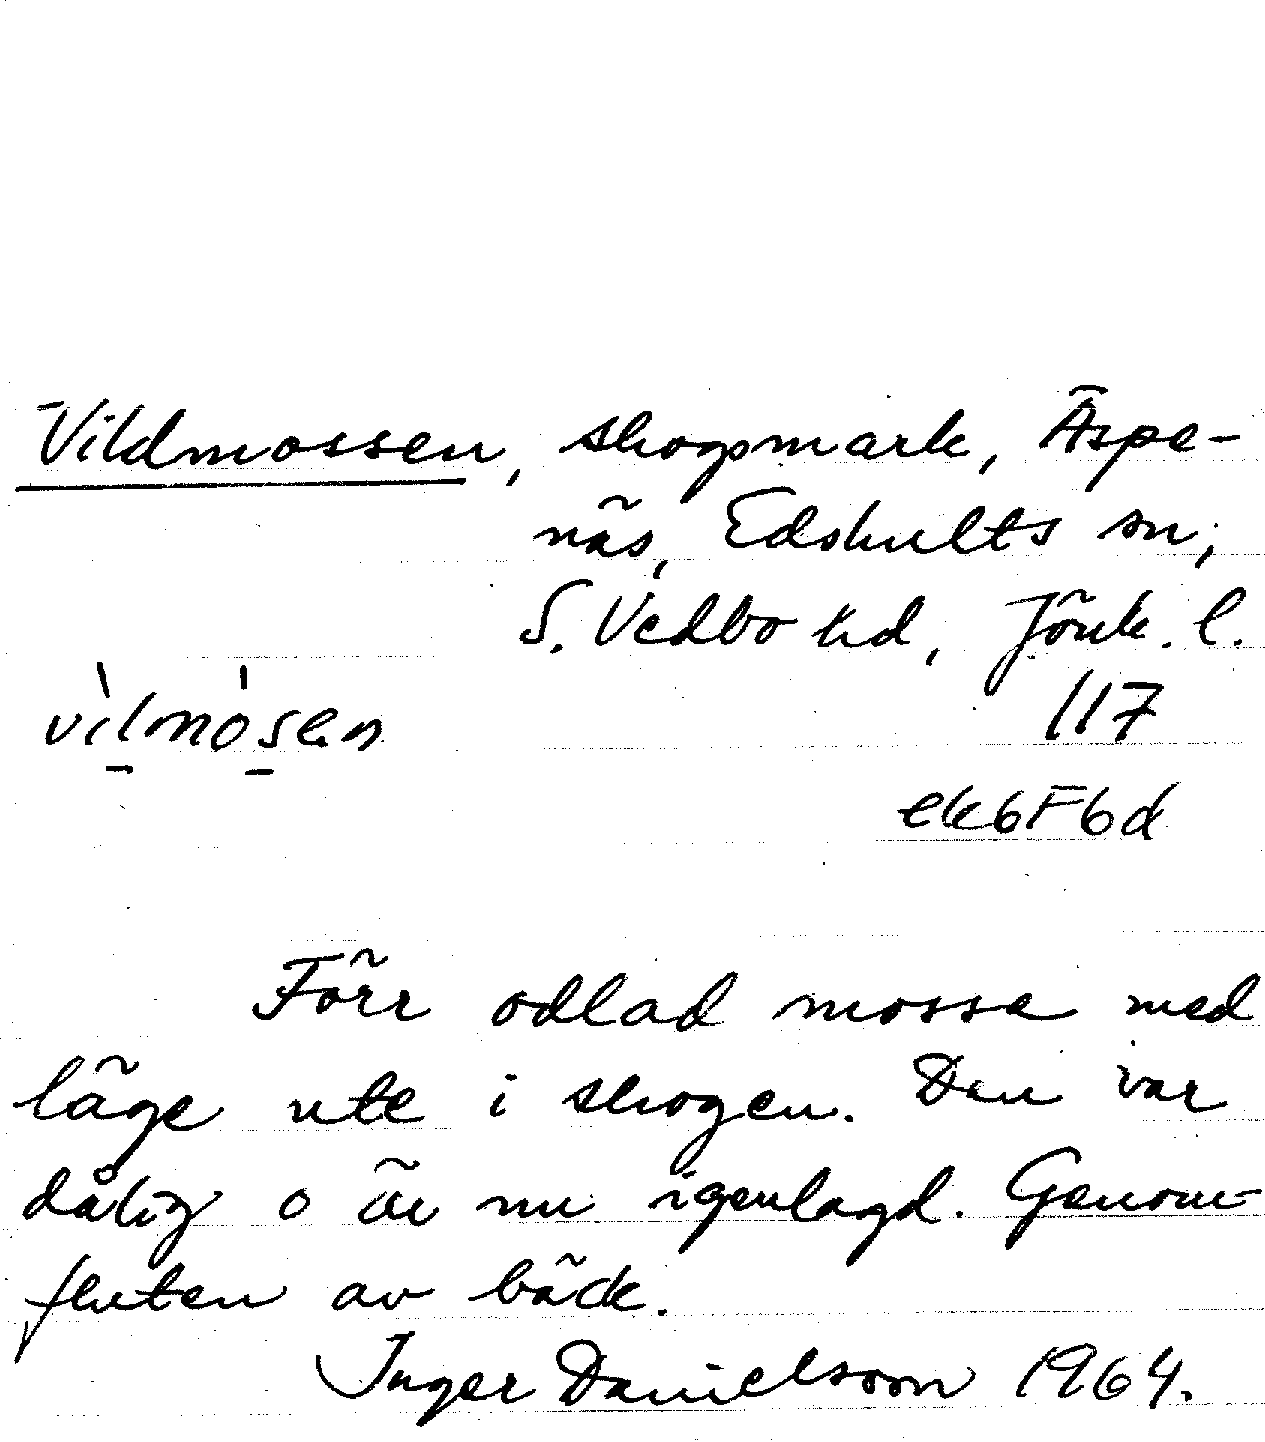 Vildmossen, skogsmark, Äspe-
näs, Edshults sn,
S. Vedbo hd, Jönk. l.
vìlmósen
117
ek6F6d
Förr odlad mosse med
läge ute i skogen. Den var
dålig o är nu igenlagd. Genom-
fluten av bäck.
Inger Danielsson 1964.